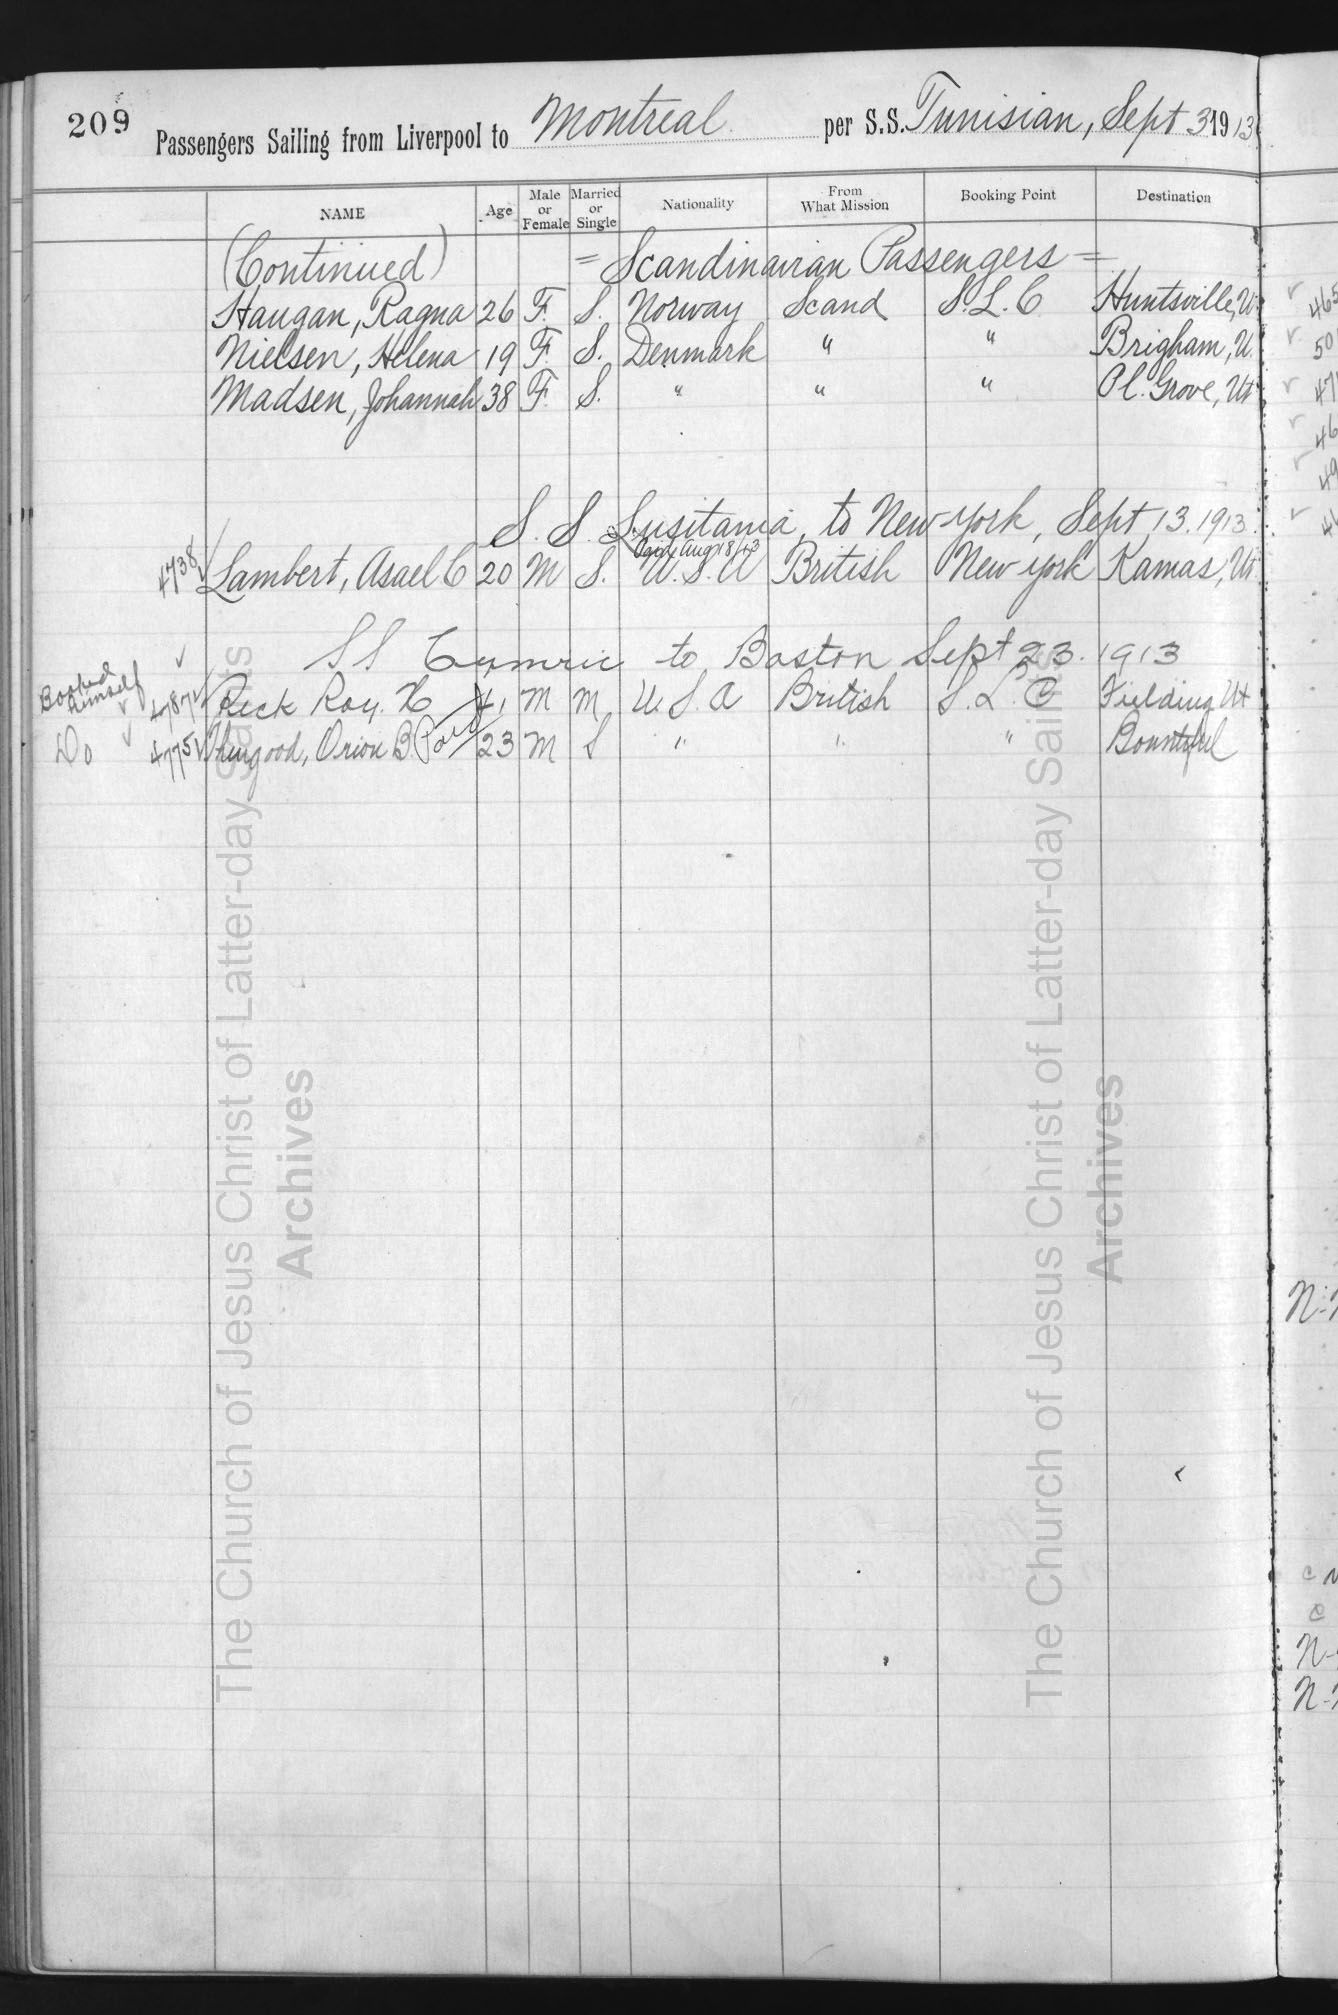 209
Passengers Sailing from Liverpool to Montreal per S.S. Tunisian, Sept 3 1913
NAME Age Male or Female Married or Single Nationality From What Mission Booking Point Destination
(Continued) = Scandinavian Passengers =
Haugan, Ragna 26 F. S. Norway Scand S.L.C Huntsville, U
Nielsen, Helena 19 F. S. Denmark " " Brigham, U.
Madsen, Johannah 38 F. S. " " " Pl. Grove, Ut
S.S. Lusitania, to New York, Sept 13. 1913.
Paid Aug 18/13
4738 Lambert, Asael C 20 M S. U.S.A British New York Kamas, Ut
SS Cymric to Boston Sept 23. 1913
Booked himself 4787 Peck Roy. H 41 M M U.S.A British S.L.C Fielding Ut
Do 4775 Thurgood, Orion B. Paid 23 M S " " " Bountiful
The Church of Jesus Christ of Latter-day Saints
Archives
The Church of Jesus Christ of Latter-day Saints
Archives